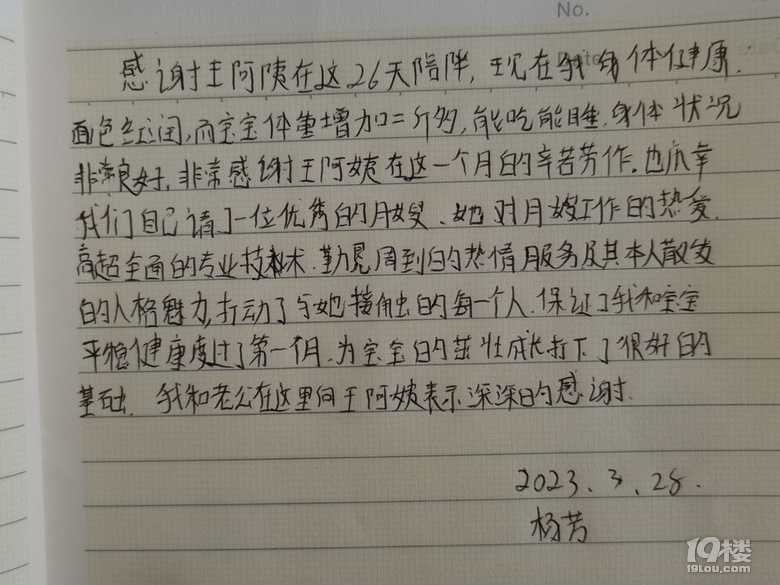 No.
感谢王阿姨在这26天陪伴,现在我身体健康.
面色红润,而宝宝体重增加二斤多,能吃能睡.身体状况
非常良好,非常感谢王阿姨在这一个月的辛苦劳作.也庆幸
我们自己请了一位优秀的月嫂、她对月嫂工作的热爱.
高超全面的专业技术.勤恳周到的热情服务及其本人散发
的人格魅力,打动了与她接触的每一个人.保证了我和宝宝
平稳健康度过了第一个月.为宝宝的茁壮成长打下了很好的
基础.我和老公在这里向王阿姨表示深深的感谢.
2023.3.28.
杨芳
19楼
19lou.com